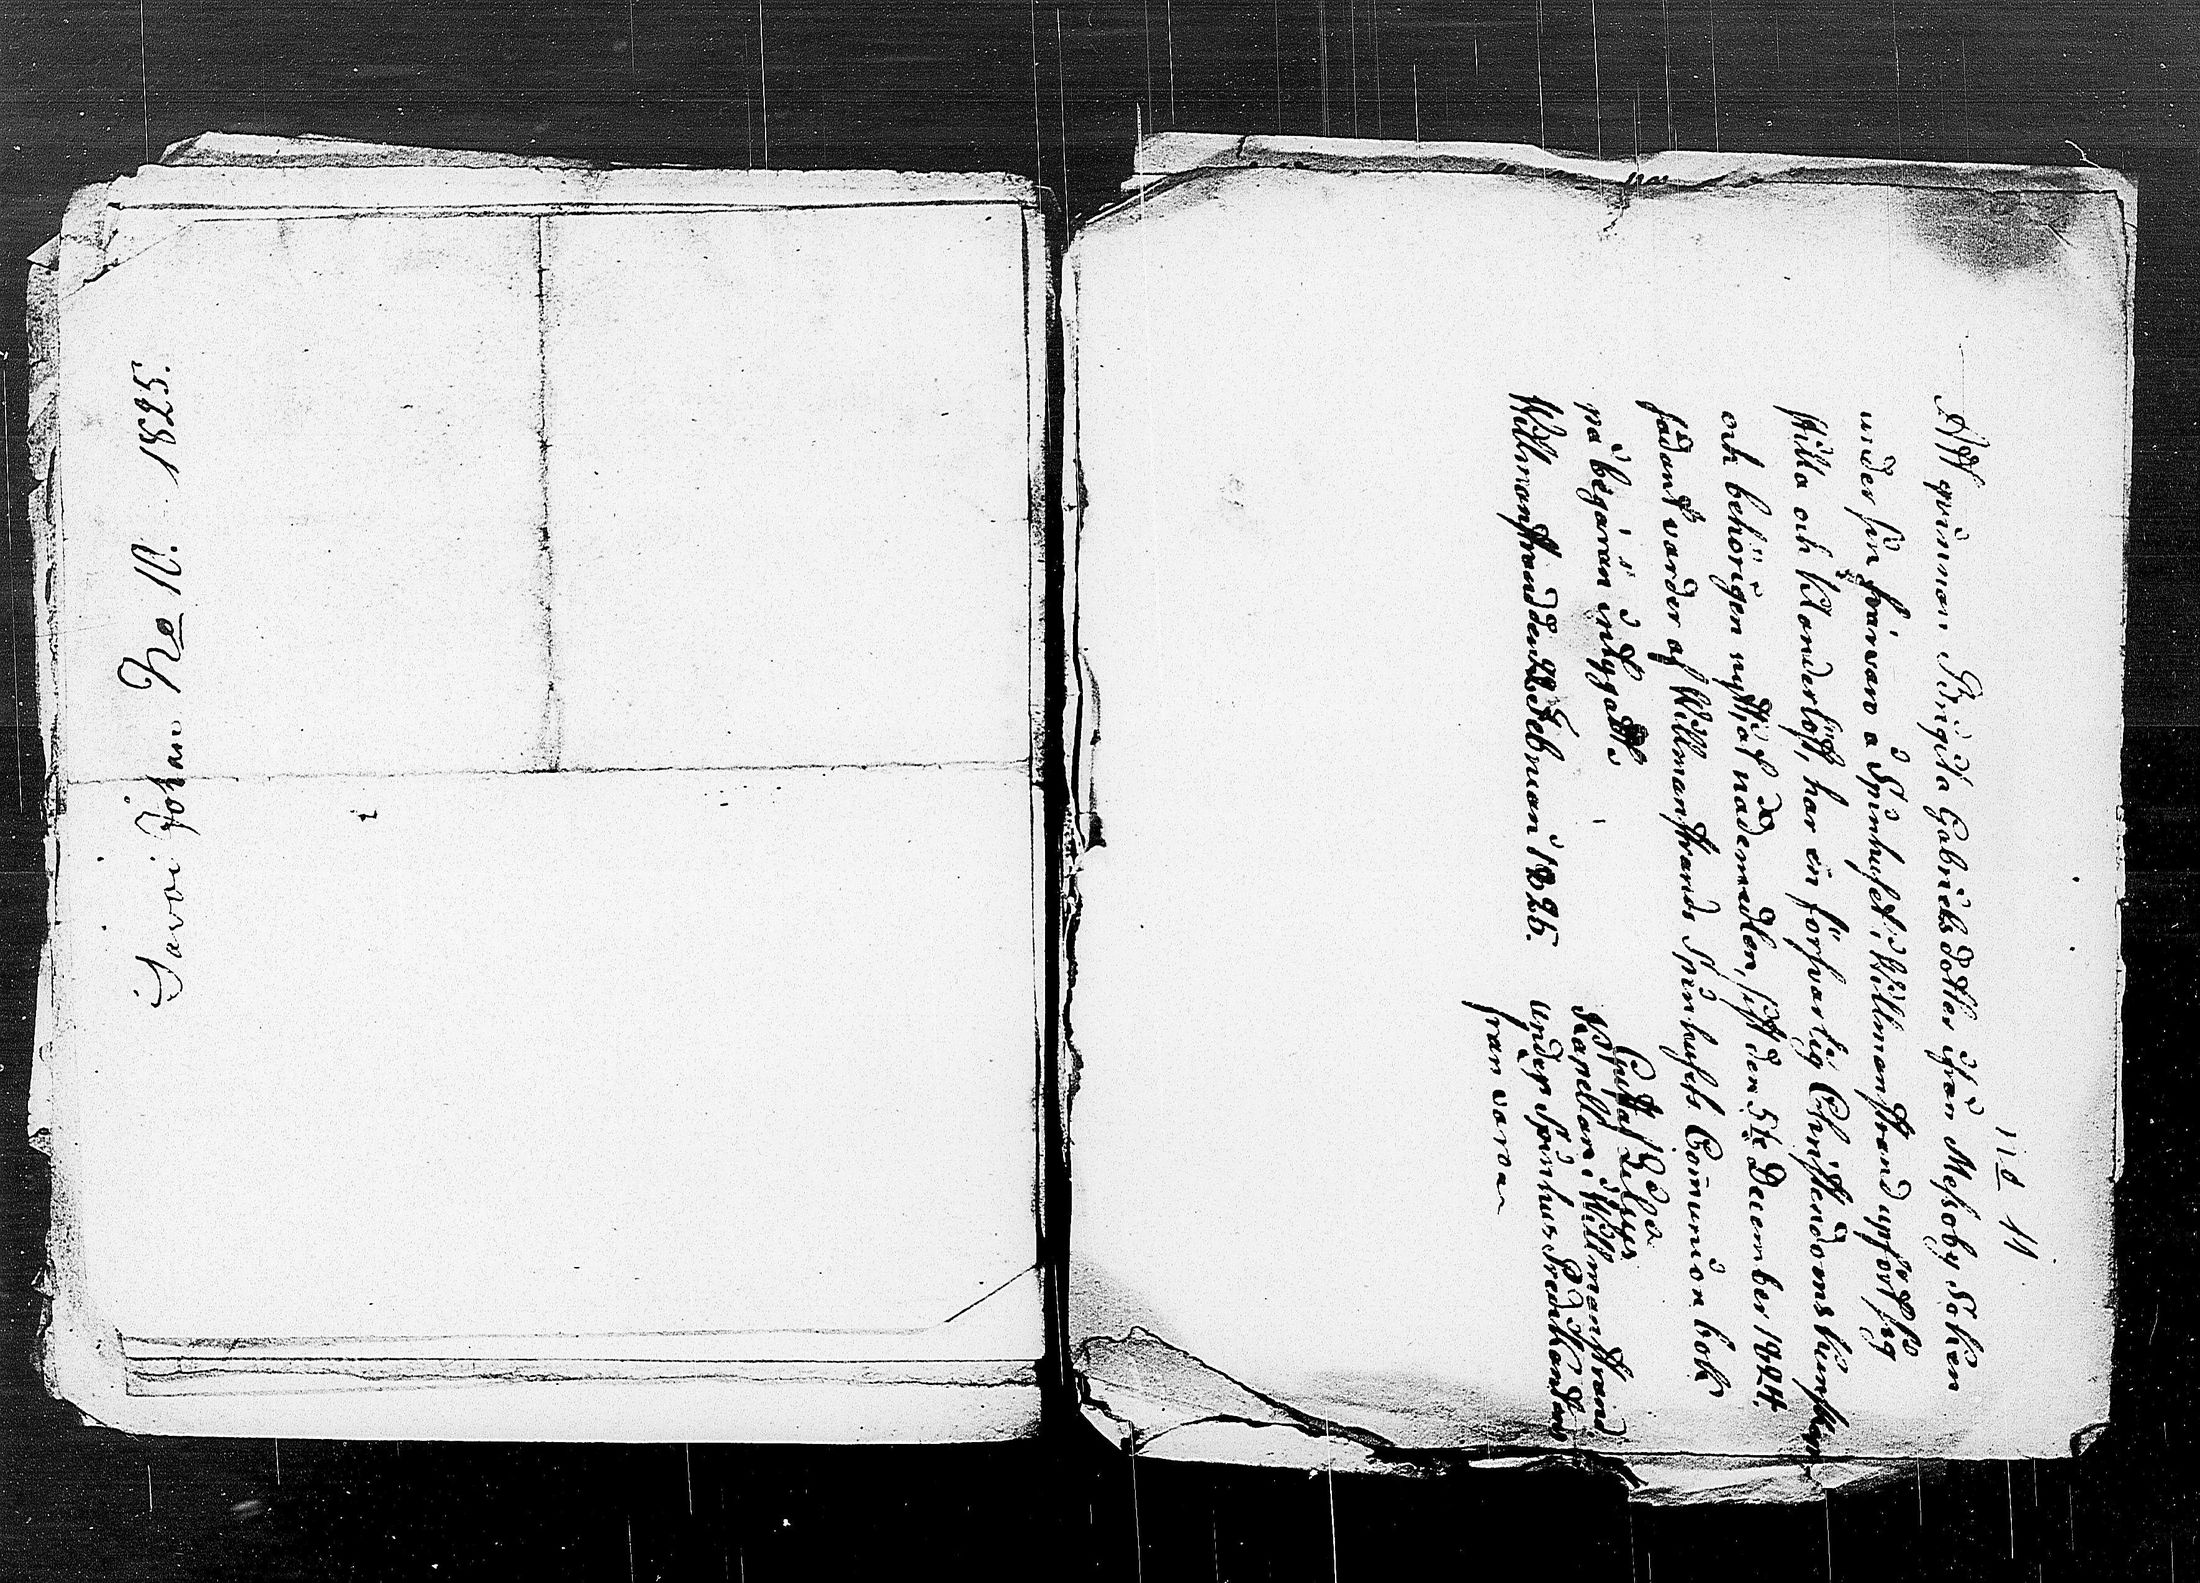 Savoi Johan No 10. 1825.
No 11
Att qvinnan Brigita Gabrielsdotter ifrån Messoby Soken
under sin frånvaro å Spinnhuset i Willmanstrand upfört sig
stilla och klanderlöst, har en försvarlig Christendoms kunskap
och behörigen nyttjat nademedlen, sist den 5te December 1824.
sådant varder af Willmanstrands Spinnhusets Communion bok
på begäran intygadt.
Willmanstrand den 22 Februari 1825.
Gustaf
Kapellan i Willmanstrand
under Spinhus Predikantens
frånvaro